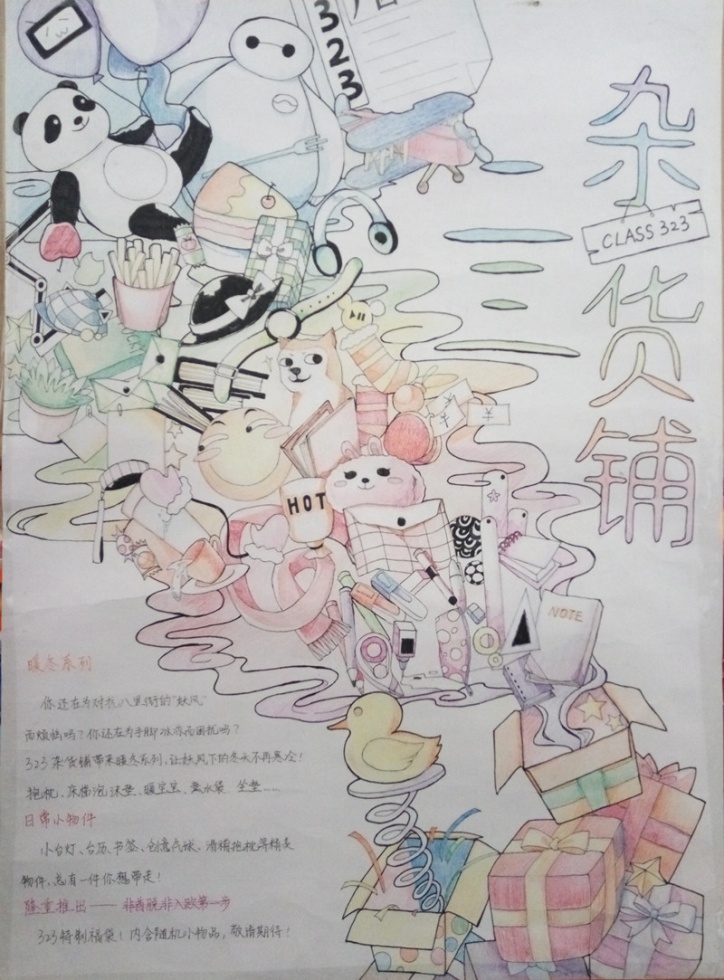 323
杂
CLASS 323
货
铺
HOT
NOTE
暖冬系列
你还在为对抗八里街的"妖风"
而烦恼吗？你还在为手脚冰凉而困扰吗？
323杂货铺带来暖冬系列，让妖风下的冬天不再寒冷！
抱枕、床藉泡沫垫、暖宝宝、热水袋 坐垫……
日常小物件
小台灯、台历、书签、创意气球、滑稽抱枕等精美
物件，总有一件你想带走！
隆重推出——非酋脱非入欧第一步
323特制福袋！内含随机小物品，敬请期待！